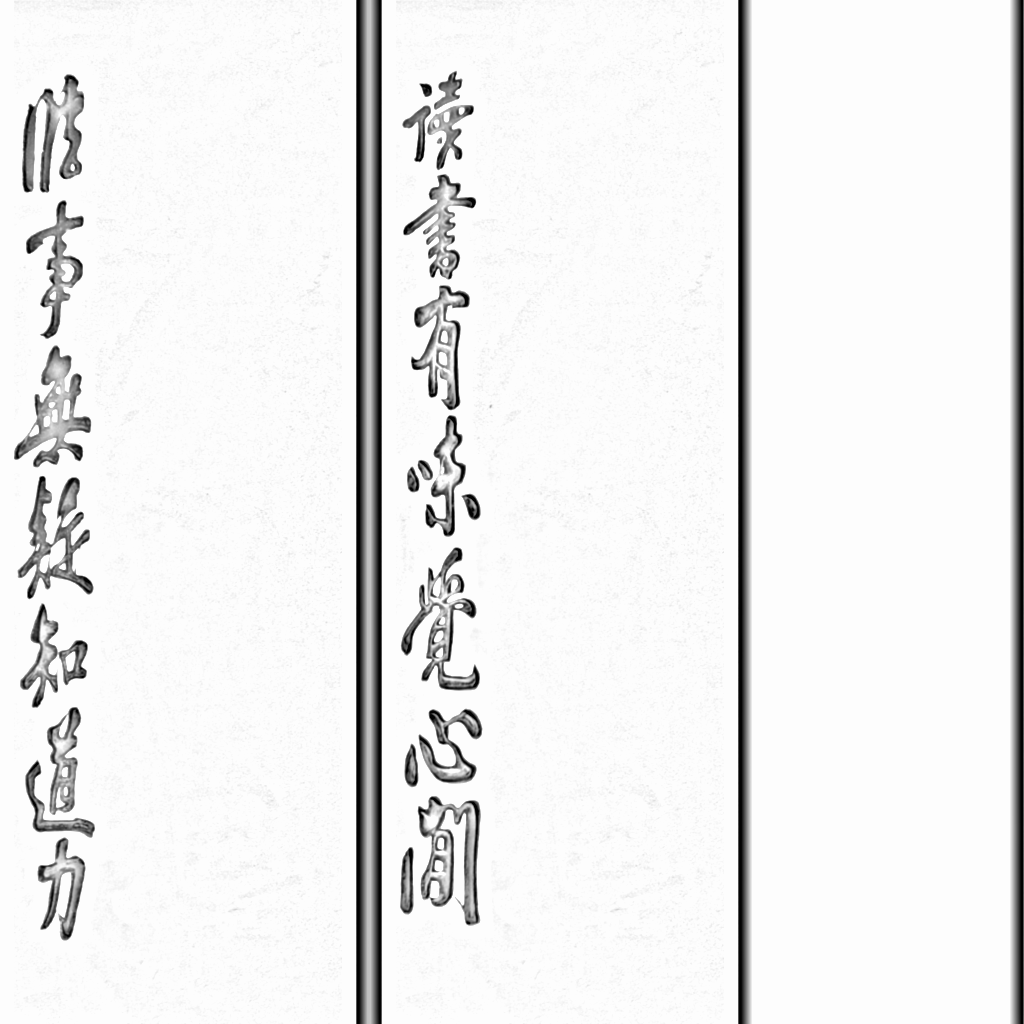 读書有味覺心間
臨事無疑知道力